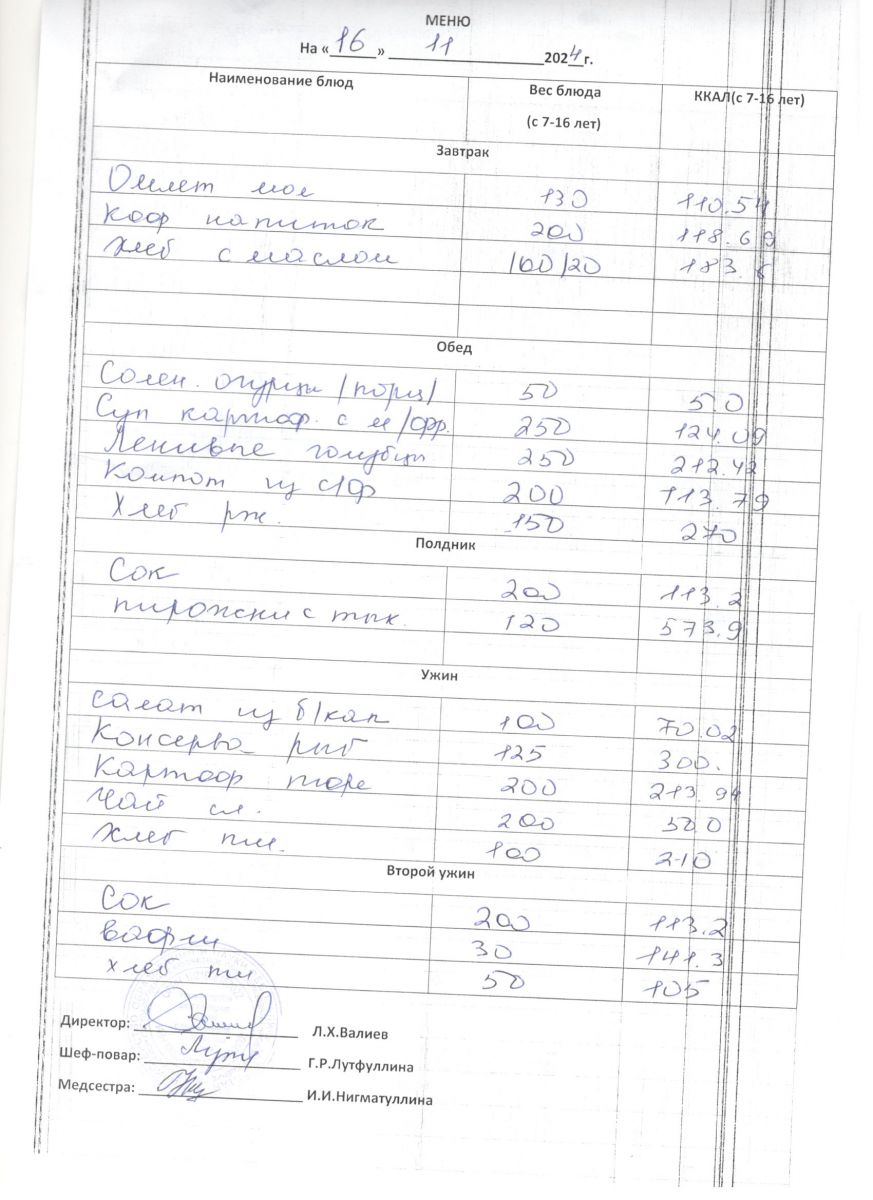 МЕНЮ
На «16» 11 2024г.
Наименование блюд Вес блюда (с 7-16 лет) ККАЛ(с 7-16 лет)
Завтрак
Омлет мол 130 110.54
Коф напиток 200 118.69
Хлеб с маслом 100/20 183.
Обед
Солен. огурцы /порц/ 50 5.0
Суп картоф. с м/фр. 250 124.09
Ленивые голубцы 250 212.42
Компот из с/ф 200 113.79
Хлеб рж. 150 270
Полдник
Сок 200 113.2
пирожки с тык. 120 573.9
Ужин
салат из б/кап 100 70.02
Консерва рыб 125 300.
Картоф пюре 200 213.94
Чай сл. 200 50 0
Хлеб пш. 100 210
Второй ужин
Сок 200 113.2
вафли 30 141.3
хлеб пш 50 105
Директор: Л.Х.Валиев
Шеф-повар: Г.Р.Лутфуллина
Медсестра: И.И.Нигматуллина